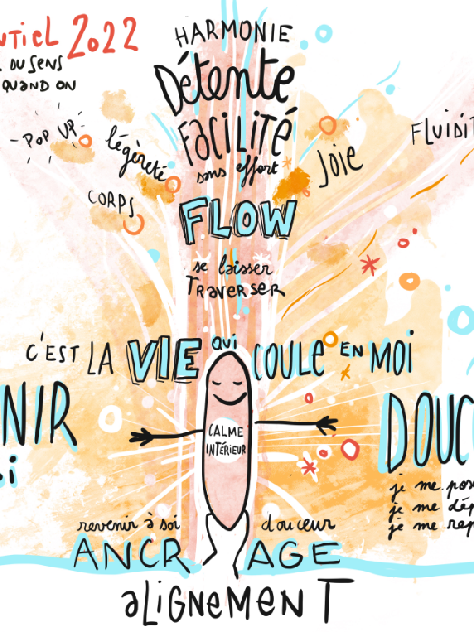 NTIEL 2022
HARMONIE
OU SENS
QUAND ON
Détente
- POP UP -
légèreté
FACILITÉ
FLUIDIT
sans effort
JOIE
CORPS
FLOW
se laisser
TRAVERSER
C'EST LA VIE qui COULE EN MOI
NIR
DOUC
CALME
INTÉRIEUR
je me pos
je me dép
je me rep
revenir à soi
douceur
ANCRAGE
ALIGNEMENT